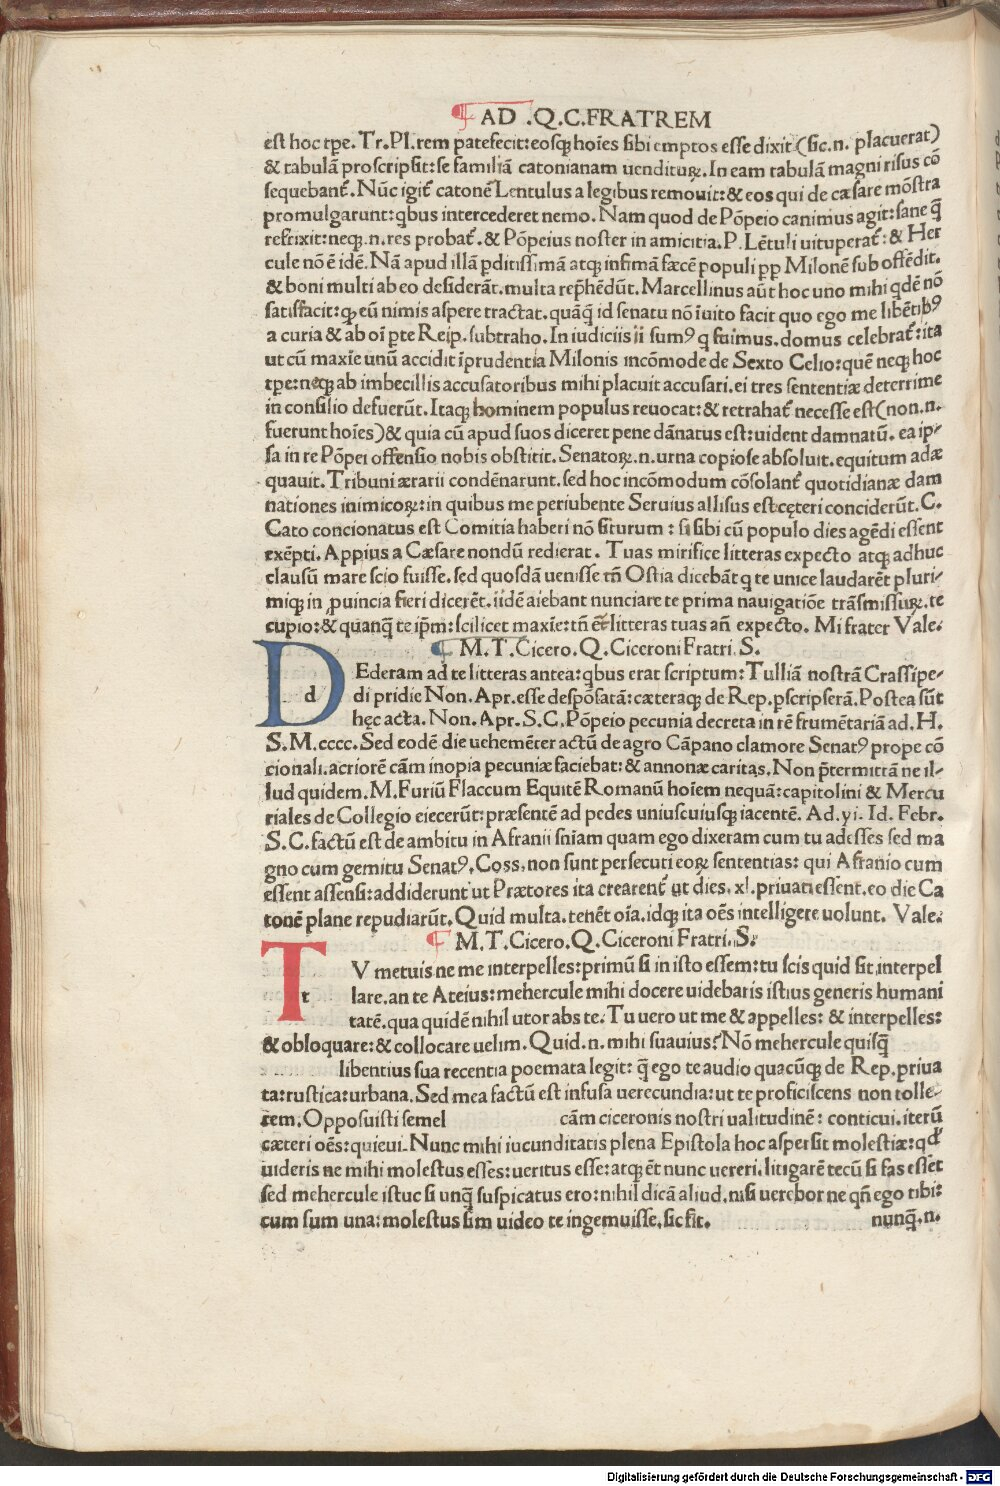 AD .Q.C.FRATREM
est hoc tꝑe. Tr.Pl.rem patefecit:eosqꝫ hoı̃es sibi emptos esse dixit (sic.n. placuerat)
& tabulã proscripsit:se familiã catonianam uendituꝝ. In eam tabulã magni risus cõ
sequebant᷑. Nũc igit᷑ catonẽ Lentulus a legibus remouit:& eos qui de cæsare mõstra
promulgarunt:qbus intercederet nemo. Nam quod de Põpeio caninius agit:sane q̃
refrixit:neqꝫ.n.res probat᷑.& Põpeius noster in amicitia.P.Lẽtuli uituperat᷑:& Her
cule nõ ẽ idẽ.Nã apud illã ꝑditissimã atqꝫ infimã fæcẽ populi pp Milonẽ sub offẽdit.
& boni multi ab eo desiderãt.multa rep̃hẽdũt.Marcellinus aũt hoc uno mihi qdẽ nõ
satisfacit:qꝫ eũ nimis aspere tractat.quãq̃ id senatu nõ ı̃uito facit quo ego me libẽtibꝰ
a curia & ab oı̃ ꝑte Reip.subtraho.In iudiciis ii sumꝰ q fuimus.domus celebrat᷑:ita
ut cũ maxı̃e unũ accidit ı̃prudentia Milonis incõmode de Sexto Celio:quẽ neqꝫ hoc
tꝑe:neqꝫ ab imbecillis accusatoribus mihi placuit accusari.ei tres sententiæ deterrime
in consilio defuerũt.Itaqꝫ hominem populus reuocat:& retrahat᷑ necesse est(non.n.
fuerunt hoı̃es)& quia cũ apud suos diceret pene dãnatus est:uident damnatũ. ea ip-
sa in re Põpei offensio nobis obstitit. Senatoꝝ.n.urna copiose absoluit.equitum adæ
quauit.Tribuni ærarii condẽnarunt.sed hoc incõmodum cõsolant᷑ quotidianæ dam
nationes inimicoꝝ:in quibus me periubente Seruius allisus est:cęteri conciderũt. C.
Cato concionatus est Comitia haberi nõ siturum : si sibi cũ populo dies agẽdi essent
exẽpti. Appius a Cæsare nondũ redierat. Tuas mirifice litteras expecto atqꝫ adhuc
clausũ mare scio fuisse. sed quosdã uenisse tñ Ostia dicebãt q te unice laudarẽt pluri-
miqꝫ in ꝓuincia fieri dicerẽt.iidẽ aiebant nunciare te prima nauigatiõe trãsmissuꝝ.te
cupio:& quanq̃ te ip̃m:scilicet maxı̃e:tñ et litteras tuas añ expecto. Mi frater Vale.
M.T.Cicero.Q.Ciceroni Fratri.S.
d
DEderam ad te litteras antea:qbus erat scriptum:Tulliã nostrã Crassipe-
di pridie Non.Apr.esse despõsatã:cæteraqꝫ de Rep.ꝑscripserã.Postea sũt
hęc acta.Non.Apr.S.C.Põpeio pecunia decreta in rẽ frumẽtariã ad.H.
S.M.cccc.Sed eodẽ die uehemẽter actũ de agro Cãpano clamore Senatꝰ prope cõ
cionali.acriorẽ cãm inopia pecuniæ faciebat:& annonæ caritas.Non p̃termittã ne il-
lud quidem.M.Furiũ Flaccum Equitẽ Romanũ hoı̃em nequã:capitolini & Mercu
riales de Collegio eiecerũt:præsentẽ ad pedes uniuscuiusqꝫ iacentẽ. Ad.yi. Id. Febr.
S.C.factũ est de ambitu in Afranii sñiam quam ego dixeram cum tu adesses sed ma
gno cum gemitu Senatꝰ.Coss.non sunt persecuti eoꝝ sententias: qui Afranio cum
essent assensi:addiderunt ut Prætores ita crearent᷑ ut dies.xl.priuati essent.eo die Ca
tonẽ plane repudiarũt.Quid multa.tenẽt oı̃a.idqꝫ ita oẽs intelligere uolunt. Vale.
M.T.Cicero.Q.Ciceroni Fratri.S.
t
TV metuis ne me interpelles:primũ si in isto essem:tu scis quid sit interpel
lare.an te Ateius:mehercule mihi docere uidebaris istius generis humani
tatẽ.qua quidẽ nihil utor abs te.Tu uero ut me & appelles: & interpelles:
& obloquare:& collocare uelim.Quid.n.mihi suauius?Nõ mehercule quisq̃
libentius sua recentia poemata legit: q̃ ego te audio quacũqꝫ de Rep.priua
ta:rustica:urbana.Sed mea factũ est infusa uerecundia:ut te proficiscens non tolle-
rem.Opposuisti semel cãm ciceronis nostri ualitudinẽ: conticui.iterũ
cæteri oẽs:quieui.Nunc mihi iucunditatis plena Epistola hoc aspersit molestiæ:qd̕
uideris ne mihi molestus esses:ueritus esse:atqꝫ ẽt nunc uereri.litigarẽ tecũ si fas esset
sed mehercule istuc si unq̃ suspicatus ero:nihil dicã aliud.nisi uerebor ne qñ ego tibi:
cum sum una:molestus sim uideo te ingemuisse.sic fit. nunq̃.n.
Digitalisierung gefördert durch die Deutsche Forschungsgemeinschaft - DFG